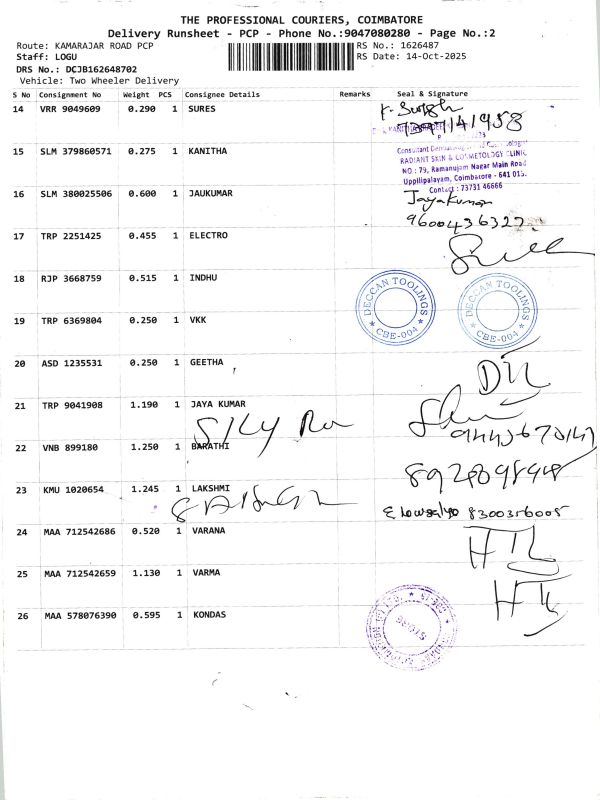 THE PROFESSIONAL COURIERS, COIMBATORE
Delivery Runsheet - PCP - Phone No.:9047080280 - Page No.:2
Route: KAMARAJAR ROAD PCP RS No.: 1626487
Staff: LOGU RS Date: 14-Oct-2025
DRS No.: DCJB162648702
Vehicle: Two Wheeler Delivery
S No Consignment No Weight PCS Consignee Details Remarks Seal & Signature
14 VRR 9049609 0.290 1 SURES
15 SLM 379860571 0.275 1 KANITHA
RADIANT SKIN & COSMETOLOGY CLINIC
NO : 79, Ramanujam Nagar Main Road
Uppilipalayam, Coimbatore - 641 015.
Contact : 73731 46666
16 SLM 380025506 0.600 1 JAUKUMAR
Jayakumar
9600436322
17 TRP 2251425 0.455 1 ELECTRO
18 RJP 3668759 0.515 1 INDHU
DECCAN TOOLINGS
* CBE-004 *
DECCAN TOOLINGS
* CBE-004 *
19 TRP 6369804 0.250 1 VKK
20 ASD 1235531 0.250 1 GEETHA
21 TRP 9041908 1.190 1 JAYA KUMAR
22 VNB 899180 1.250 1 BARATHI
23 KMU 1020654 1.245 1 LAKSHMI
8300356005
24 MAA 712542686 0.520 1 VARANA
25 MAA 712542659 1.130 1 VARMA
26 MAA 578076390 0.595 1 KONDAS
STORE